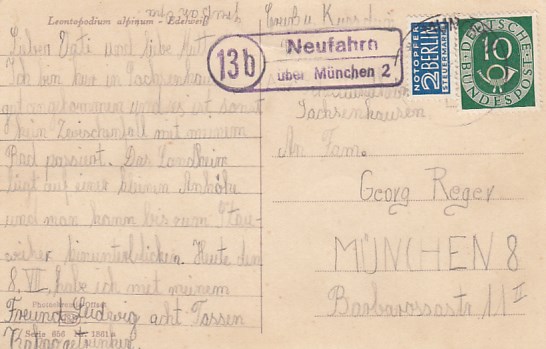 Leontopodium alpinum - Edelweiß
Lieber Vati und liebe Mutti
Ich bin hier in Sachsenhausen
gut angekommen und es ist sonst
kein Zwischenfall mit meinem
Rad passiert. Das Landheim
liegt auf einer kleinen Anhöhe
und man kann bis zum Stau-
weiher hinunterblicken. Heute den
8. VII. hab ich mit meinem
Freund Ludwig acht Tassen
Kakao getrunken.
Serie 656 Nr. 1861
13b
Neufahrn
über München 2
NOTOPFER
2 BERLIN
STEUERMARKE
DEUTSCHE
BUNDESPOST
10
Sachsenhausen
An Fam.
Georg Reger
MÜNCHEN 8
Barbarossastr. 11 II